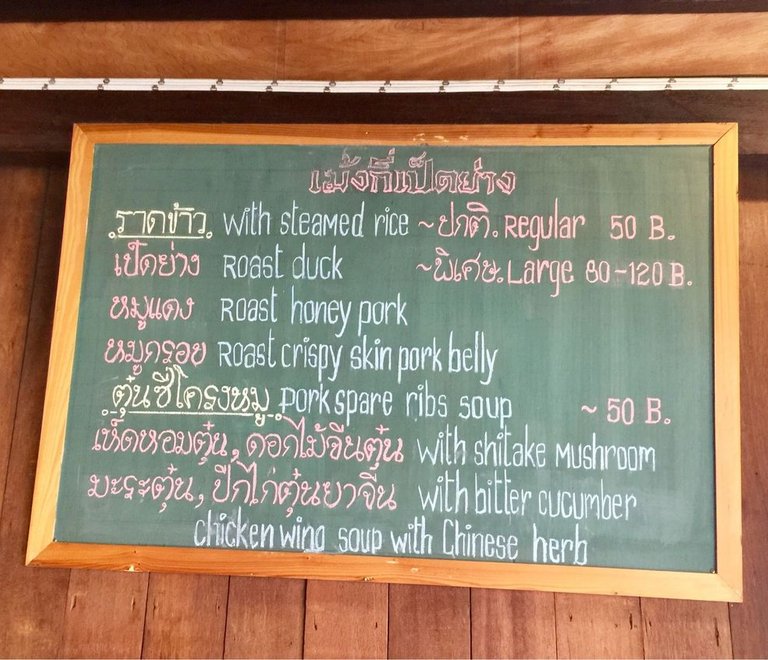 เม้งกี่เป็ดย่าง
ราดข้าว with steamed rice ~ปกติ. Regular 50 B.
เป็ดย่าง Roast duck ~พิเศษ. Large 80-120 B.
หมูแดง Roast honey pork
หมูกรอบ Roast crispy skin pork belly
ตุ๋นซี่โครงหมู pork spare ribs soup ~ 50 B.
เห็ดหอมตุ๋น, ดอกไม้จีนตุ๋น with shitake mushroom
มะระตุ๋น, ปีกไก่ตุ๋นยาจีน with bitter cucumber
chicken wing soup with Chinese herb